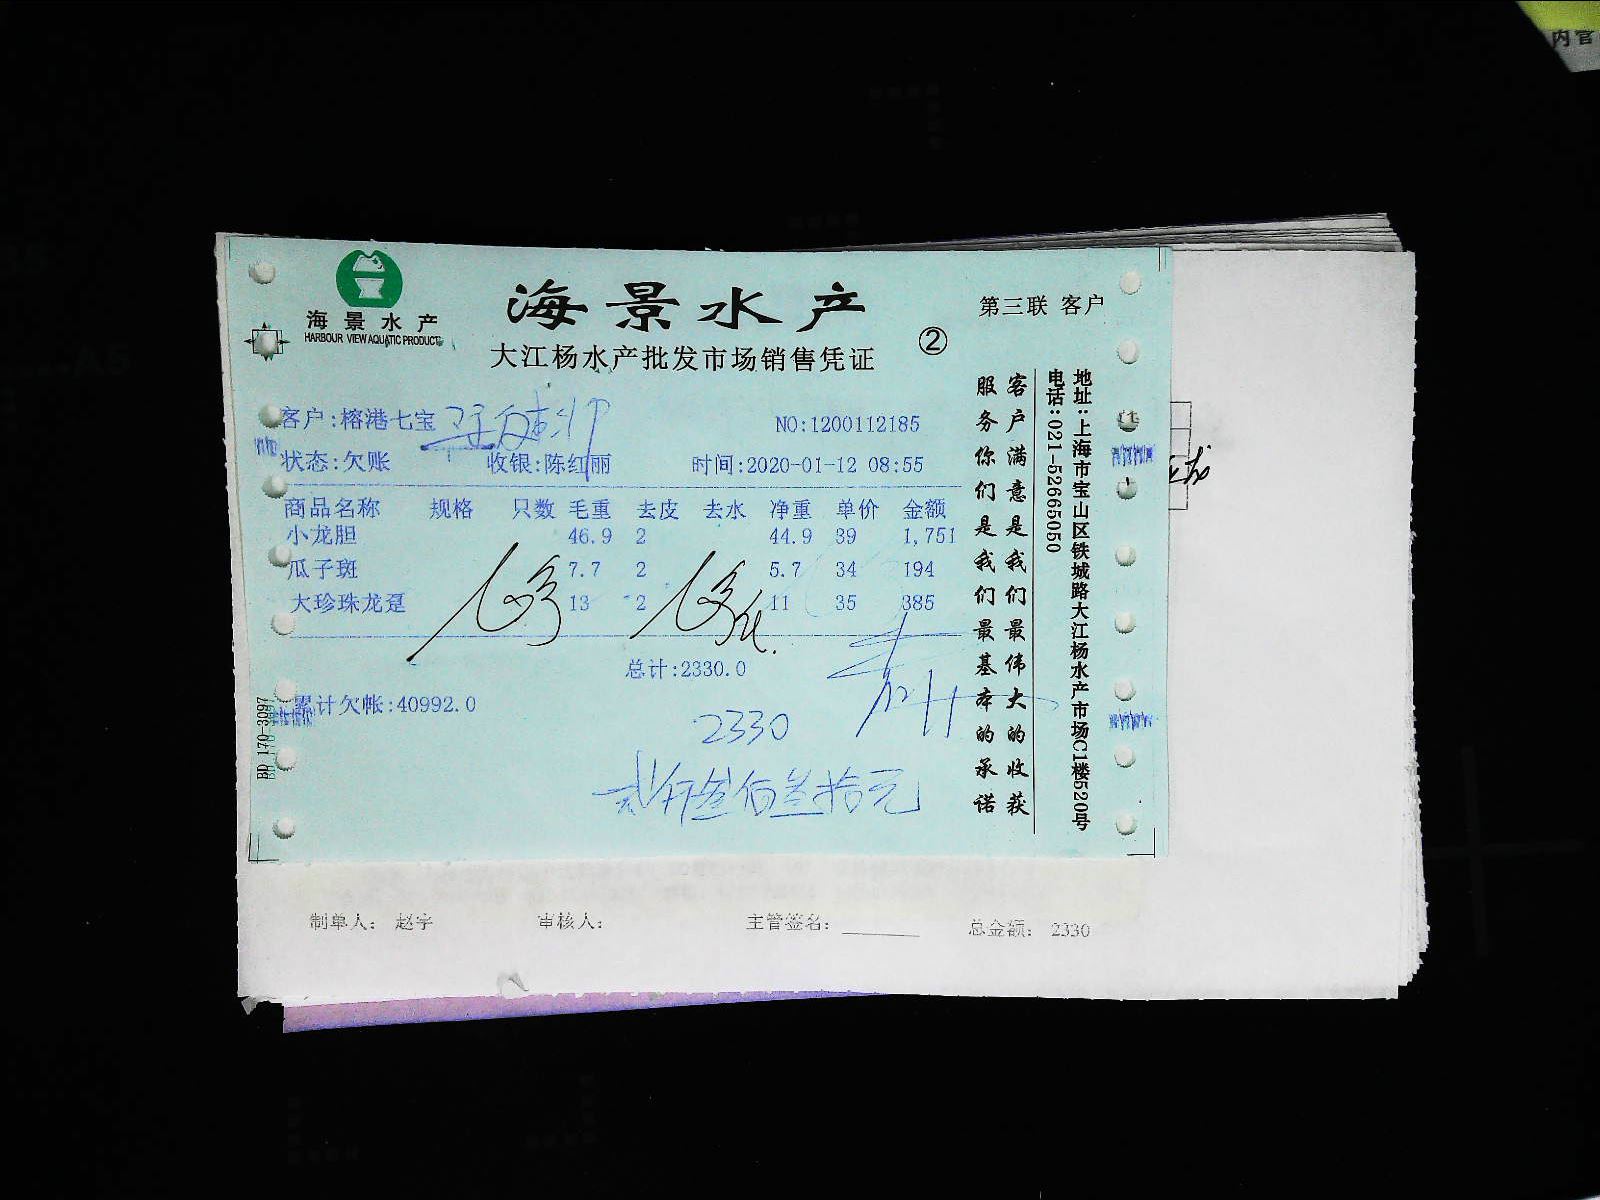 内官
海景水产
HARBOUR VIEW AQUATIC PRODUCT
海景水产
大江杨水产批发市场销售凭证
②
第三联 客户
客户:榕港七宝
NO:1200112185
状态:欠账 收银:陈红丽 时间:2020-01-12 08:55
商品名称 规格 只数 毛重 去皮 去水 净重 单价 金额
小龙胆 46.9 2 44.9 39 1,751
瓜子斑 7.7 2 5.7 34 194
大珍珠龙趸 13 2 11 35 385
总计:2330.0
累计欠帐:40992.0
2330
贰仟叁佰叁拾元
客户满意是我们最伟大的收获
服务你们是我们最基本的承诺
地址:上海市宝山区铁城路大江杨水产市场C1楼520号
电话:021-52665050
BD 170-3097
制单人: 赵宇 审核人: 主管签名: 总金额: 2330